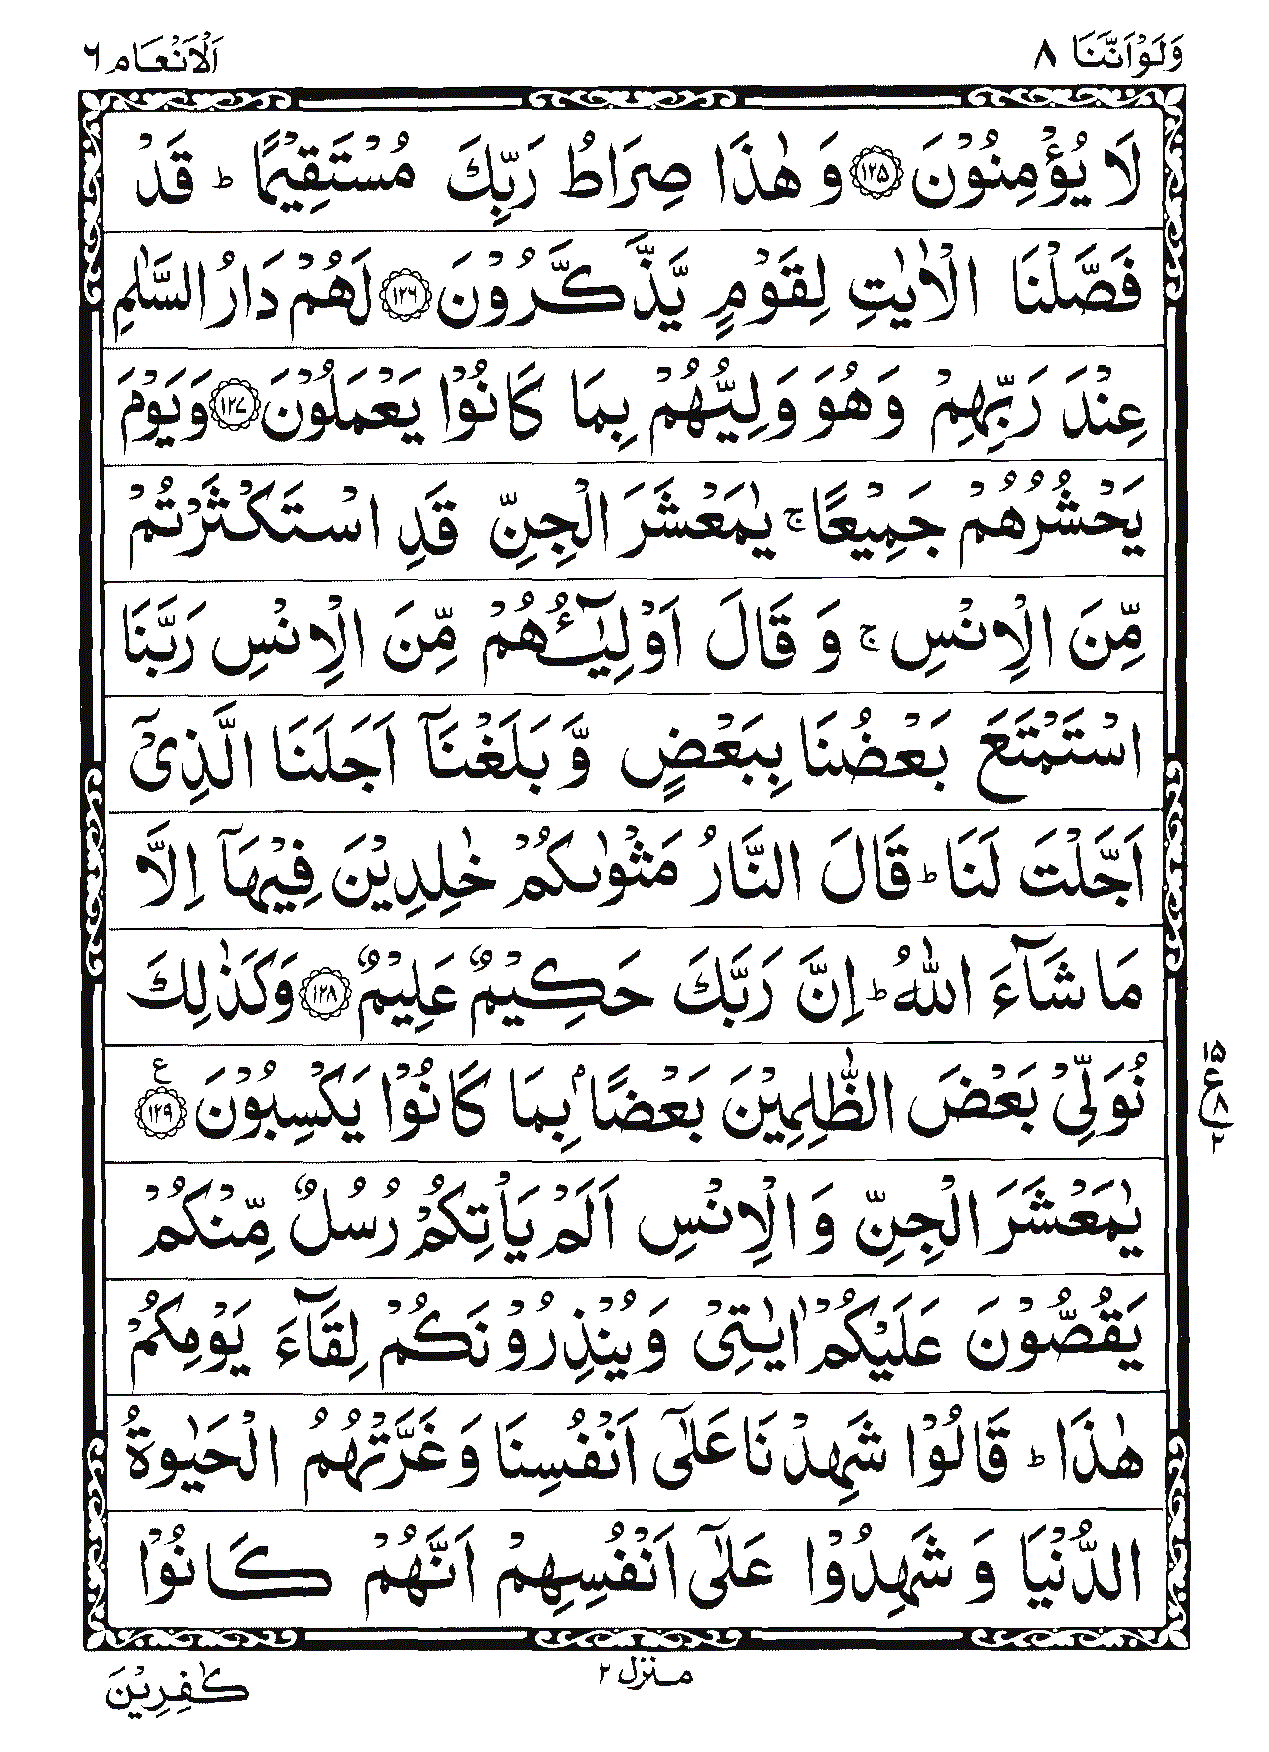 وَلَوْ اَنَّنَا ۸
اَلْاَنْعَام ۶
لَا يُؤْمِنُوْنَ ﴿۱۲۵﴾ وَ هٰذَا صِرَاطُ رَبِّكَ مُسْتَقِيْمًا ؕ قَدْ
فَصَّلْنَا الْاٰيٰتِ لِقَوْمٍ يَّذَّكَّرُوْنَ ﴿۱۲۶﴾ لَهُمْ دَارُ السَّلٰمِ
عِنْدَ رَبِّهِمْ وَهُوَ وَلِيُّهُمْ بِمَا كَانُوْا يَعْمَلُوْنَ ﴿۱۲۷﴾ وَيَوْمَ
يَحْشُرُهُمْ جَمِيْعًا ۚ يٰمَعْشَرَ الْجِنِّ قَدِ اسْتَكْثَرْتُمْ
مِّنَ الْاِنْسِ ۚ وَ قَالَ اَوْلِيٰٓـُٔهُمْ مِّنَ الْاِنْسِ رَبَّنَا
اسْتَمْتَعَ بَعْضُنَا بِبَعْضٍ وَّ بَلَغْنَآ اَجَلَنَا الَّذِيْۤ
اَجَّلْتَ لَنَا ؕ قَالَ النَّارُ مَثْوٰىكُمْ خٰلِدِيْنَ فِيْهَاۤ اِلَّا
مَا شَآءَ اللّٰهُ ؕ اِنَّ رَبَّكَ حَكِيْمٌ عَلِيْمٌ ﴿۱۲۸﴾ وَكَذٰلِكَ
نُوَلِّيْ بَعْضَ الظّٰلِمِيْنَ بَعْضًاۢ بِمَا كَانُوْا يَكْسِبُوْنَ ﴿۱۲۹﴾ ع
۱۵
ع ۸
۲
يٰمَعْشَرَ الْجِنِّ وَ الْاِنْسِ اَلَمْ يَاْتِكُمْ رُسُلٌ مِّنْكُمْ
يَقُصُّوْنَ عَلَيْكُمْ اٰيٰتِيْ وَيُنْذِرُوْنَكُمْ لِقَآءَ يَوْمِكُمْ
هٰذَا ؕ قَالُوْا شَهِدْنَا عَلٰٓى اَنْفُسِنَا وَغَرَّتْهُمُ الْحَيٰوةُ
الدُّنْيَا وَ شَهِدُوْا عَلٰٓى اَنْفُسِهِمْ اَنَّهُمْ كَانُوْا
منزل ۲
كٰفِرِيْنَ